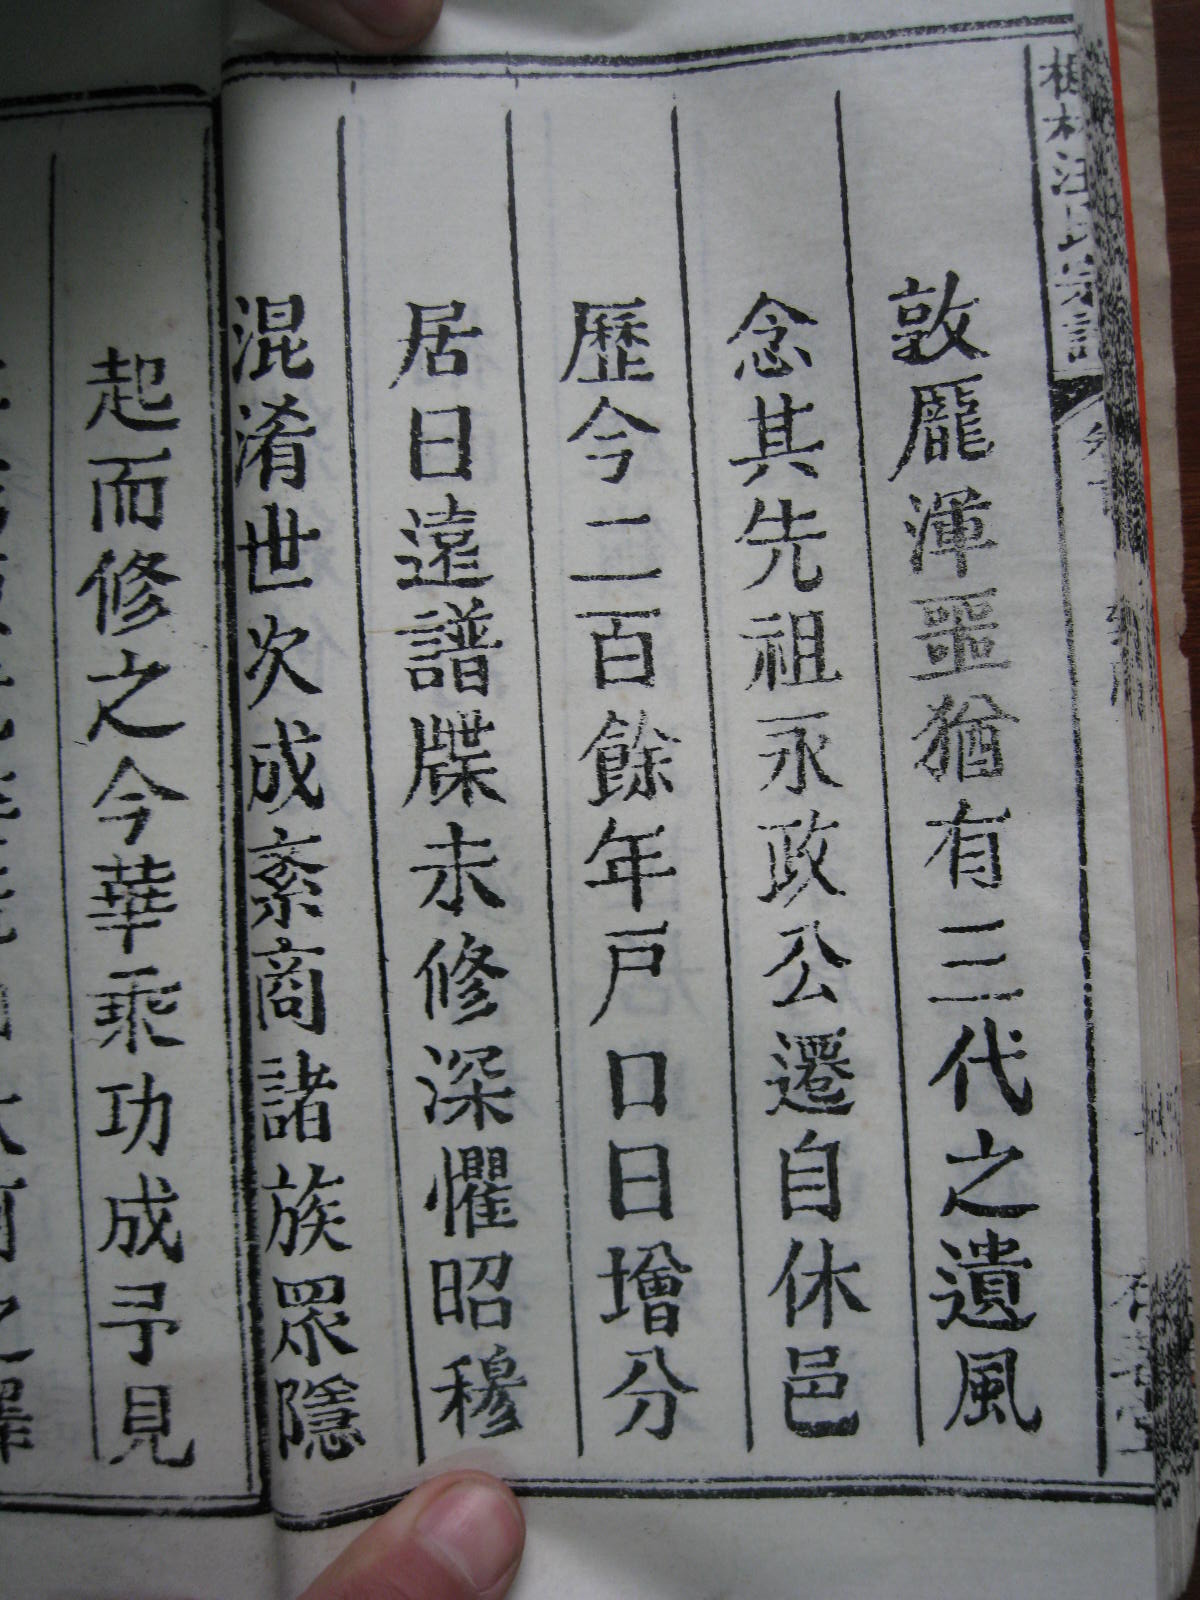 汪氏宗譜
敦龐渾噩猶有三代之遺風
念其先祖永政公遷自休邑
歷今二百餘年戸口日增分
居日遠譜牒未修深懼昭穆
混淆世次成紊商諸族眾隱
起而修之今華乘功成予見